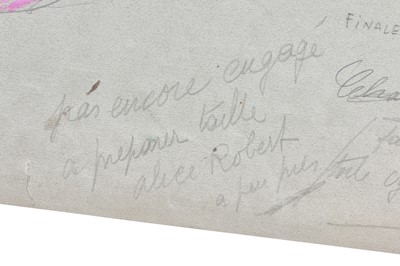 FINALE
pas encore engagé
a preparer taille
alice Robert
a peu pres